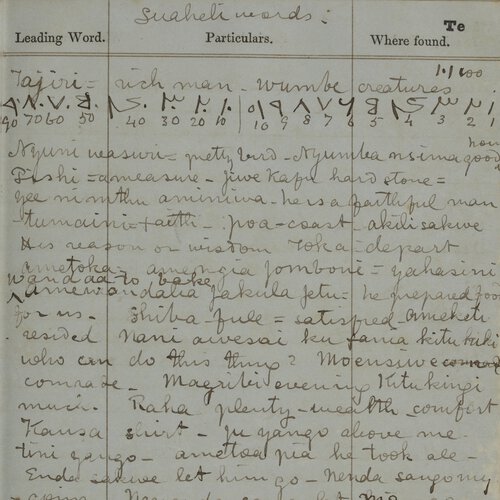 Suaheli words:
Te
Leading Word. Particulars. Where found.
Tajiri = rich man - wumbe creatures 1.1/100
90 70 60 50 40 30 20 10 10 9 8 7 6 5 4 3 2 1
Nyuni wasuri = pretty bird - Nyumba nsima good
Pishi = a measure - jiwe kafu hard stone =
yee ni mthu aminiwa - he is a faithful man
tumaini = faith - poa - coast - akili sakwe
His reason or wisdom Toka - depart
ametoka - amengia jomboni = yahasini
wandaa to bake
Amewandalia jakula jetu = he prepared food
for us - Shiba - fule = satisfied ameketi
resided Nani awesai ku fania kitu hiki
who can do this thing? Moensiwe
comrade - Magribi evening Kitu kingi
much. Raha plenty - wealth comfort
Kansa shirt - Ju yango above me -
tini yango - ametoa pia he took all -
Ende sakwe let him go - Nenda